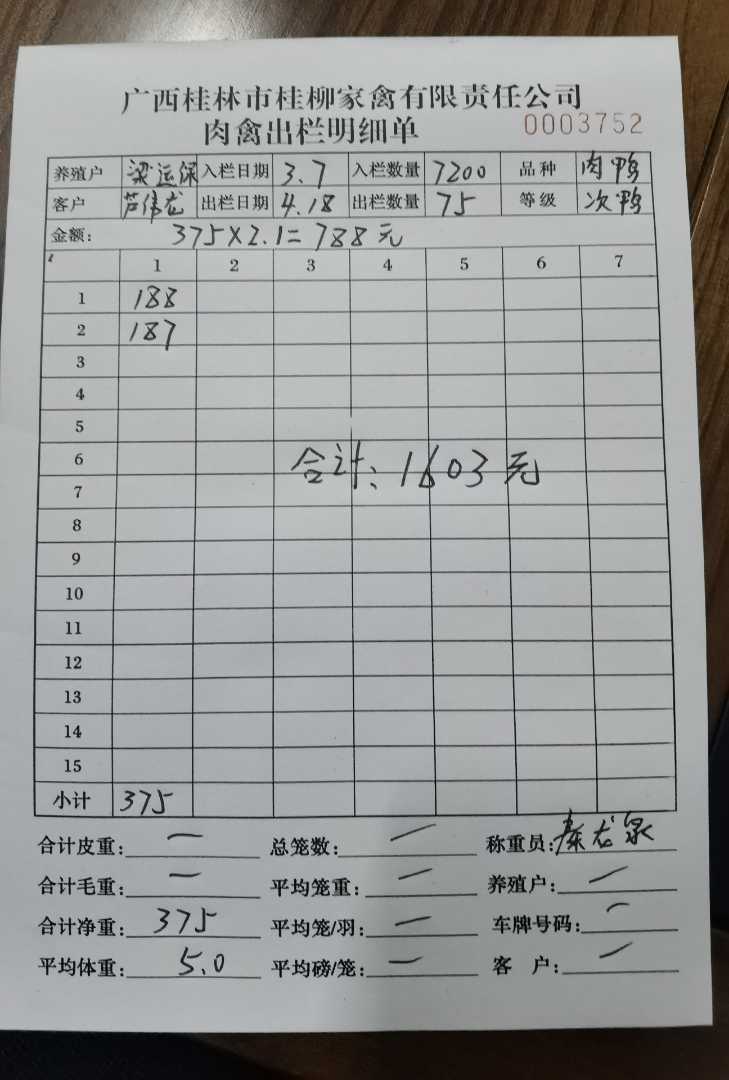 广西桂林市桂柳家禽有限责任公司
肉禽出栏明细单 0003752
养殖户 梁运保 入栏日期 3.7 入栏数量 7200 品种 肉鸭
客户 芦伟龙 出栏日期 4.18 出栏数量 75 等级 次鸭
金额: 375×2.1=788元
1 2 3 4 5 6 7
1 188
2 187
3
4
5
6
合计:1603元
7
8
9
10
11
12
13
14
15
小计 375
合计皮重: — 总笼数: — 称重员: 秦龙泉
合计毛重: — 平均笼重: — 养殖户: —
合计净重: 375 平均笼/羽: — 车牌号码: —
平均体重: 5.0 平均磅/笼: — 客 户: —